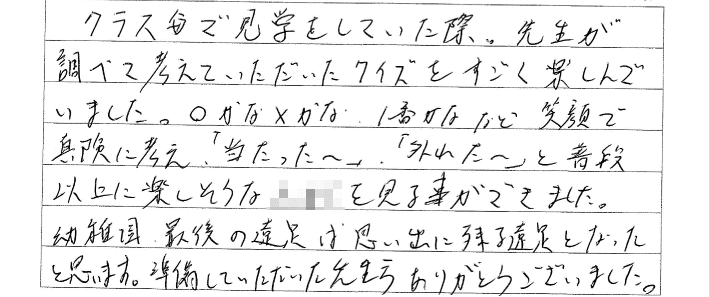 クラス毎で見学をしていた際。先生が
調べて考えていただいたクイズをすごく楽しんで
いました。〇かな×かな、1番かななど笑顔で
真険に考え、「当たった〜」、「外れた〜」と普段
以上に楽しそうな を見る事ができました。
幼稚園、最後の遠足は思い出に残る遠足となった
と思います。準備していただいた先生方ありがとうございました。